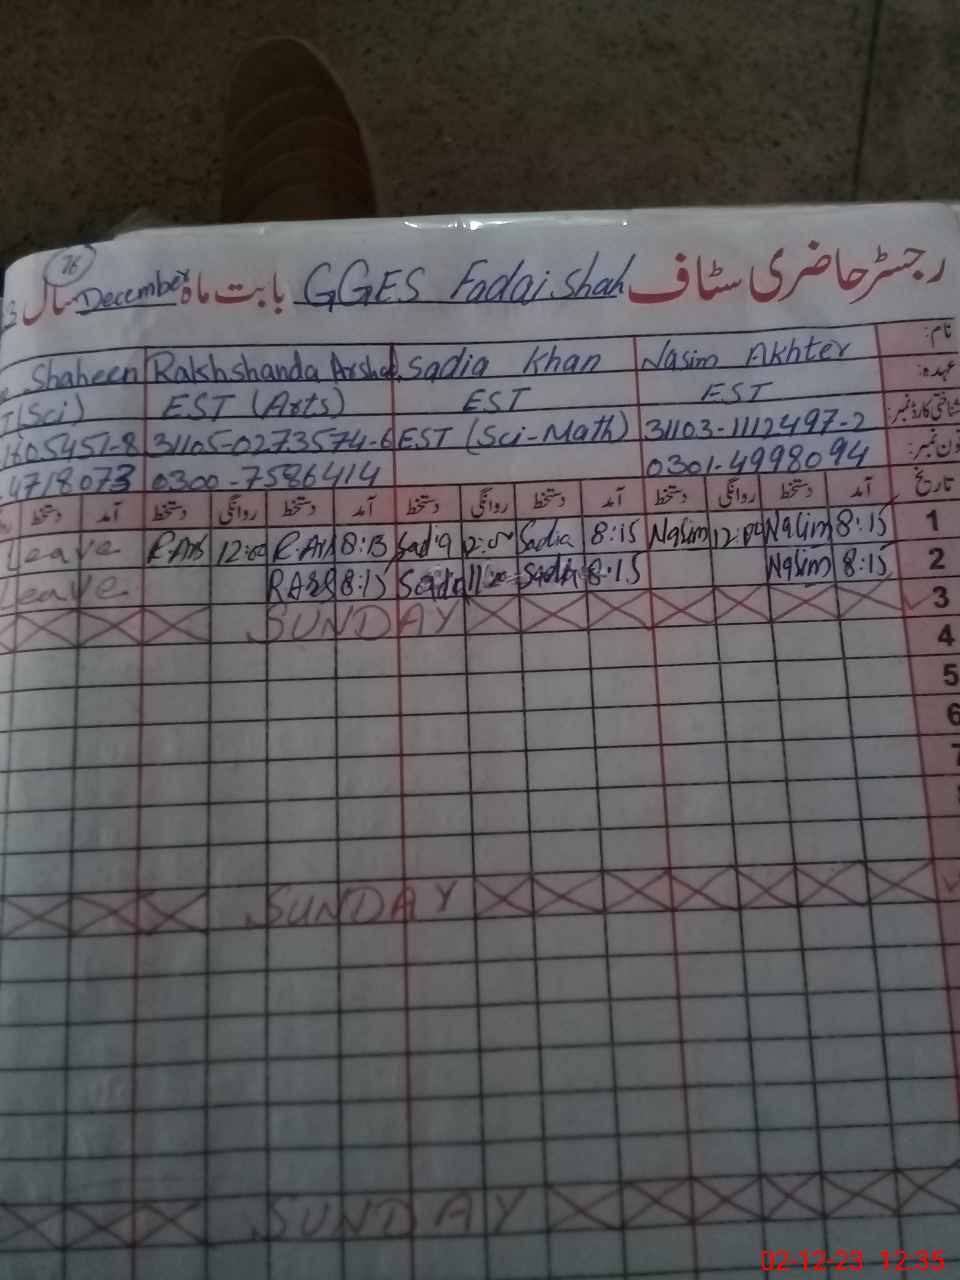 76
رجسٹر حاضری سٹاف GGES Fadai Shah بابت ماہ December سال 3
نام: Nasim Akhter Sadia Khan Rakhshanda Arshad Shaheen
عہدہ: EST EST EST (Arts) T(Sci)
شناختی کارڈ نمبر: 31103-1112497-2 EST (Sci-Math) 31105-0273574-6 1805451-8
فون نمبر: 0301-4998094 0300-7586414 4718073
تاریخ آمد دستخط روانگی دستخط آمد دستخط روانگی دستخط آمد دستخط روانگی دستخط آمد دستخط
1 8:15 Nasim Nasim 8:15 Sadia Sadia 8:15 12:00 Leave
2 8:15 Nasim 8:15 8:15 Leave
3 SUNDAY
4
5
6
7
SUNDAY
SUNDAY
02-12-23 12:35